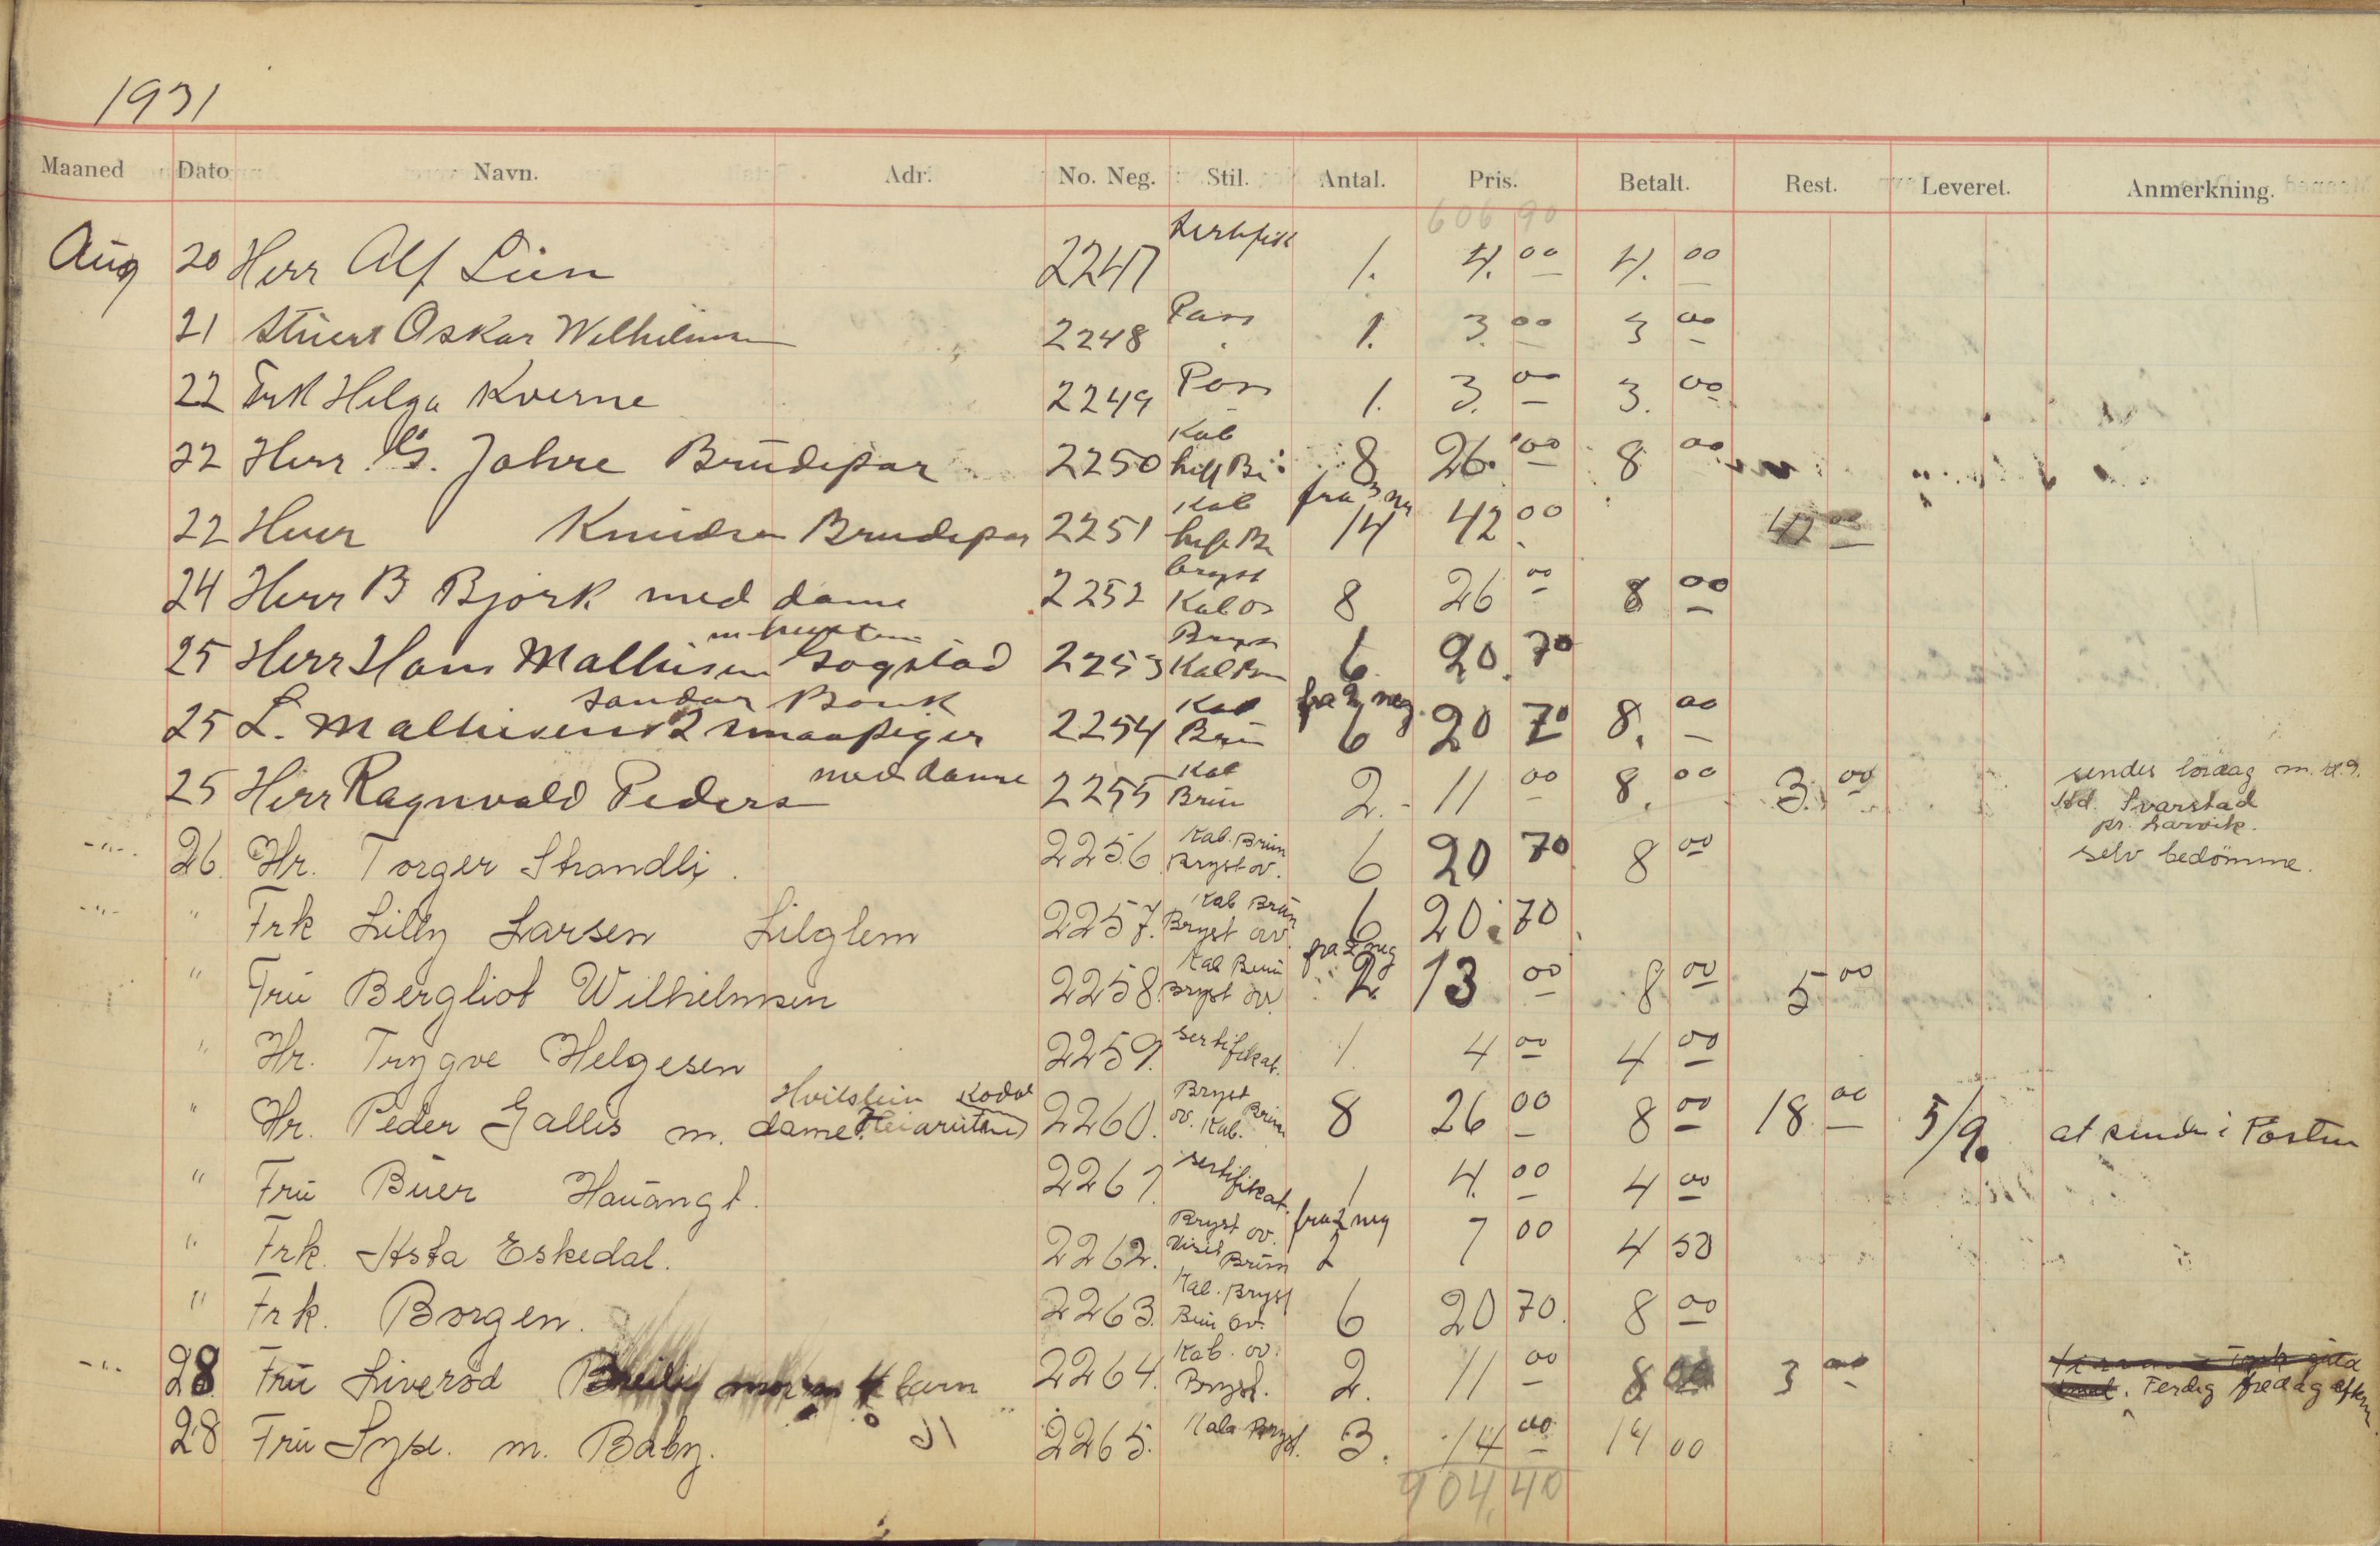 1931
Maaned Dato Navn. Adr. No. Neg. Stil. Antal. Pris. Betalt. Rest. Leveret. Anmerkning.
606 90
Aug 20 Herr Alf Lien 2247 Sertifik 1. 4. 00 4. 00
21 Stuert Oskar Wilhelmsen 2248 Pass 1. 3. 00 3 00
22 Frk Helga Kverne 2249 Pass 1. 3. 00 3. 00
22 Herr G. Jahre Brudepar 2250 Kab hel Br 8 26. 00 8 00
fra 3 neg
22 Herr Knudsen Brudepar 2251 Kab hel Br 14 42. 00 42 00
24 Herr B Bjørk med dame 2252 bryst Kab ov 8 26 00 8 00
25 Herr Hans Mathisen Gogstad 2253 Bryst Kab Brun 6 20. 70
Sandar Bank
fra 2 neg.
25 L. Mathisens 2 smaapiger 2254 Kab Brun 6 20 70 8. 00
25 Herr Ragnvald Pedersen med dame 2255 Kab Brun 2. 11 00 8. 00 3. 00 sendes lördag m. kl. 9.
Svarstad
pr. Larvik.
selv bedömme.
26 Hr. Torger Strandli. 2256 Kab. Brun Bryst ov. 6 20 70 8 00
" Frk Lilly Larsen Lilglem 2257. Kab Brun Bryst ov. 6 20. 70
fra 2 neg
" Fru Bergliot Wilhelmsen 2258. Kab Brun Bryst ov. 2. 13 00 8 00 5 00
" Hr. Trygve Helgesen 2259. Sertifikat. 1 4 00 4 00
Hvitstein Kodal
" Hr. Peder Gallis m. dame. 2260. Bryst ov. Kab. Brun 8 26 00 8 00 18 00 5/9. at sende i Posten
" Fru Buer Hauangt. 2261. Sertifikat. 1 4. 00 4 00
fra 2 neg
" Frk. Asta Eskedal. 2262. Bryst ov. Visit Brun 2 7 00 4 50
" Frk. Borgen. 2263. Kab. Bryst Brun ov. 6 20 70. 8 00
28 Fru Liveröd barn 2264. Kab. ov. Bryst. 2. 11 00 8 00 3 00 Ferdig fredag eftm.
28 Fru Sype. m. Baby. 2265. Kab Bryst. 3. 14 00 14 00
904,40